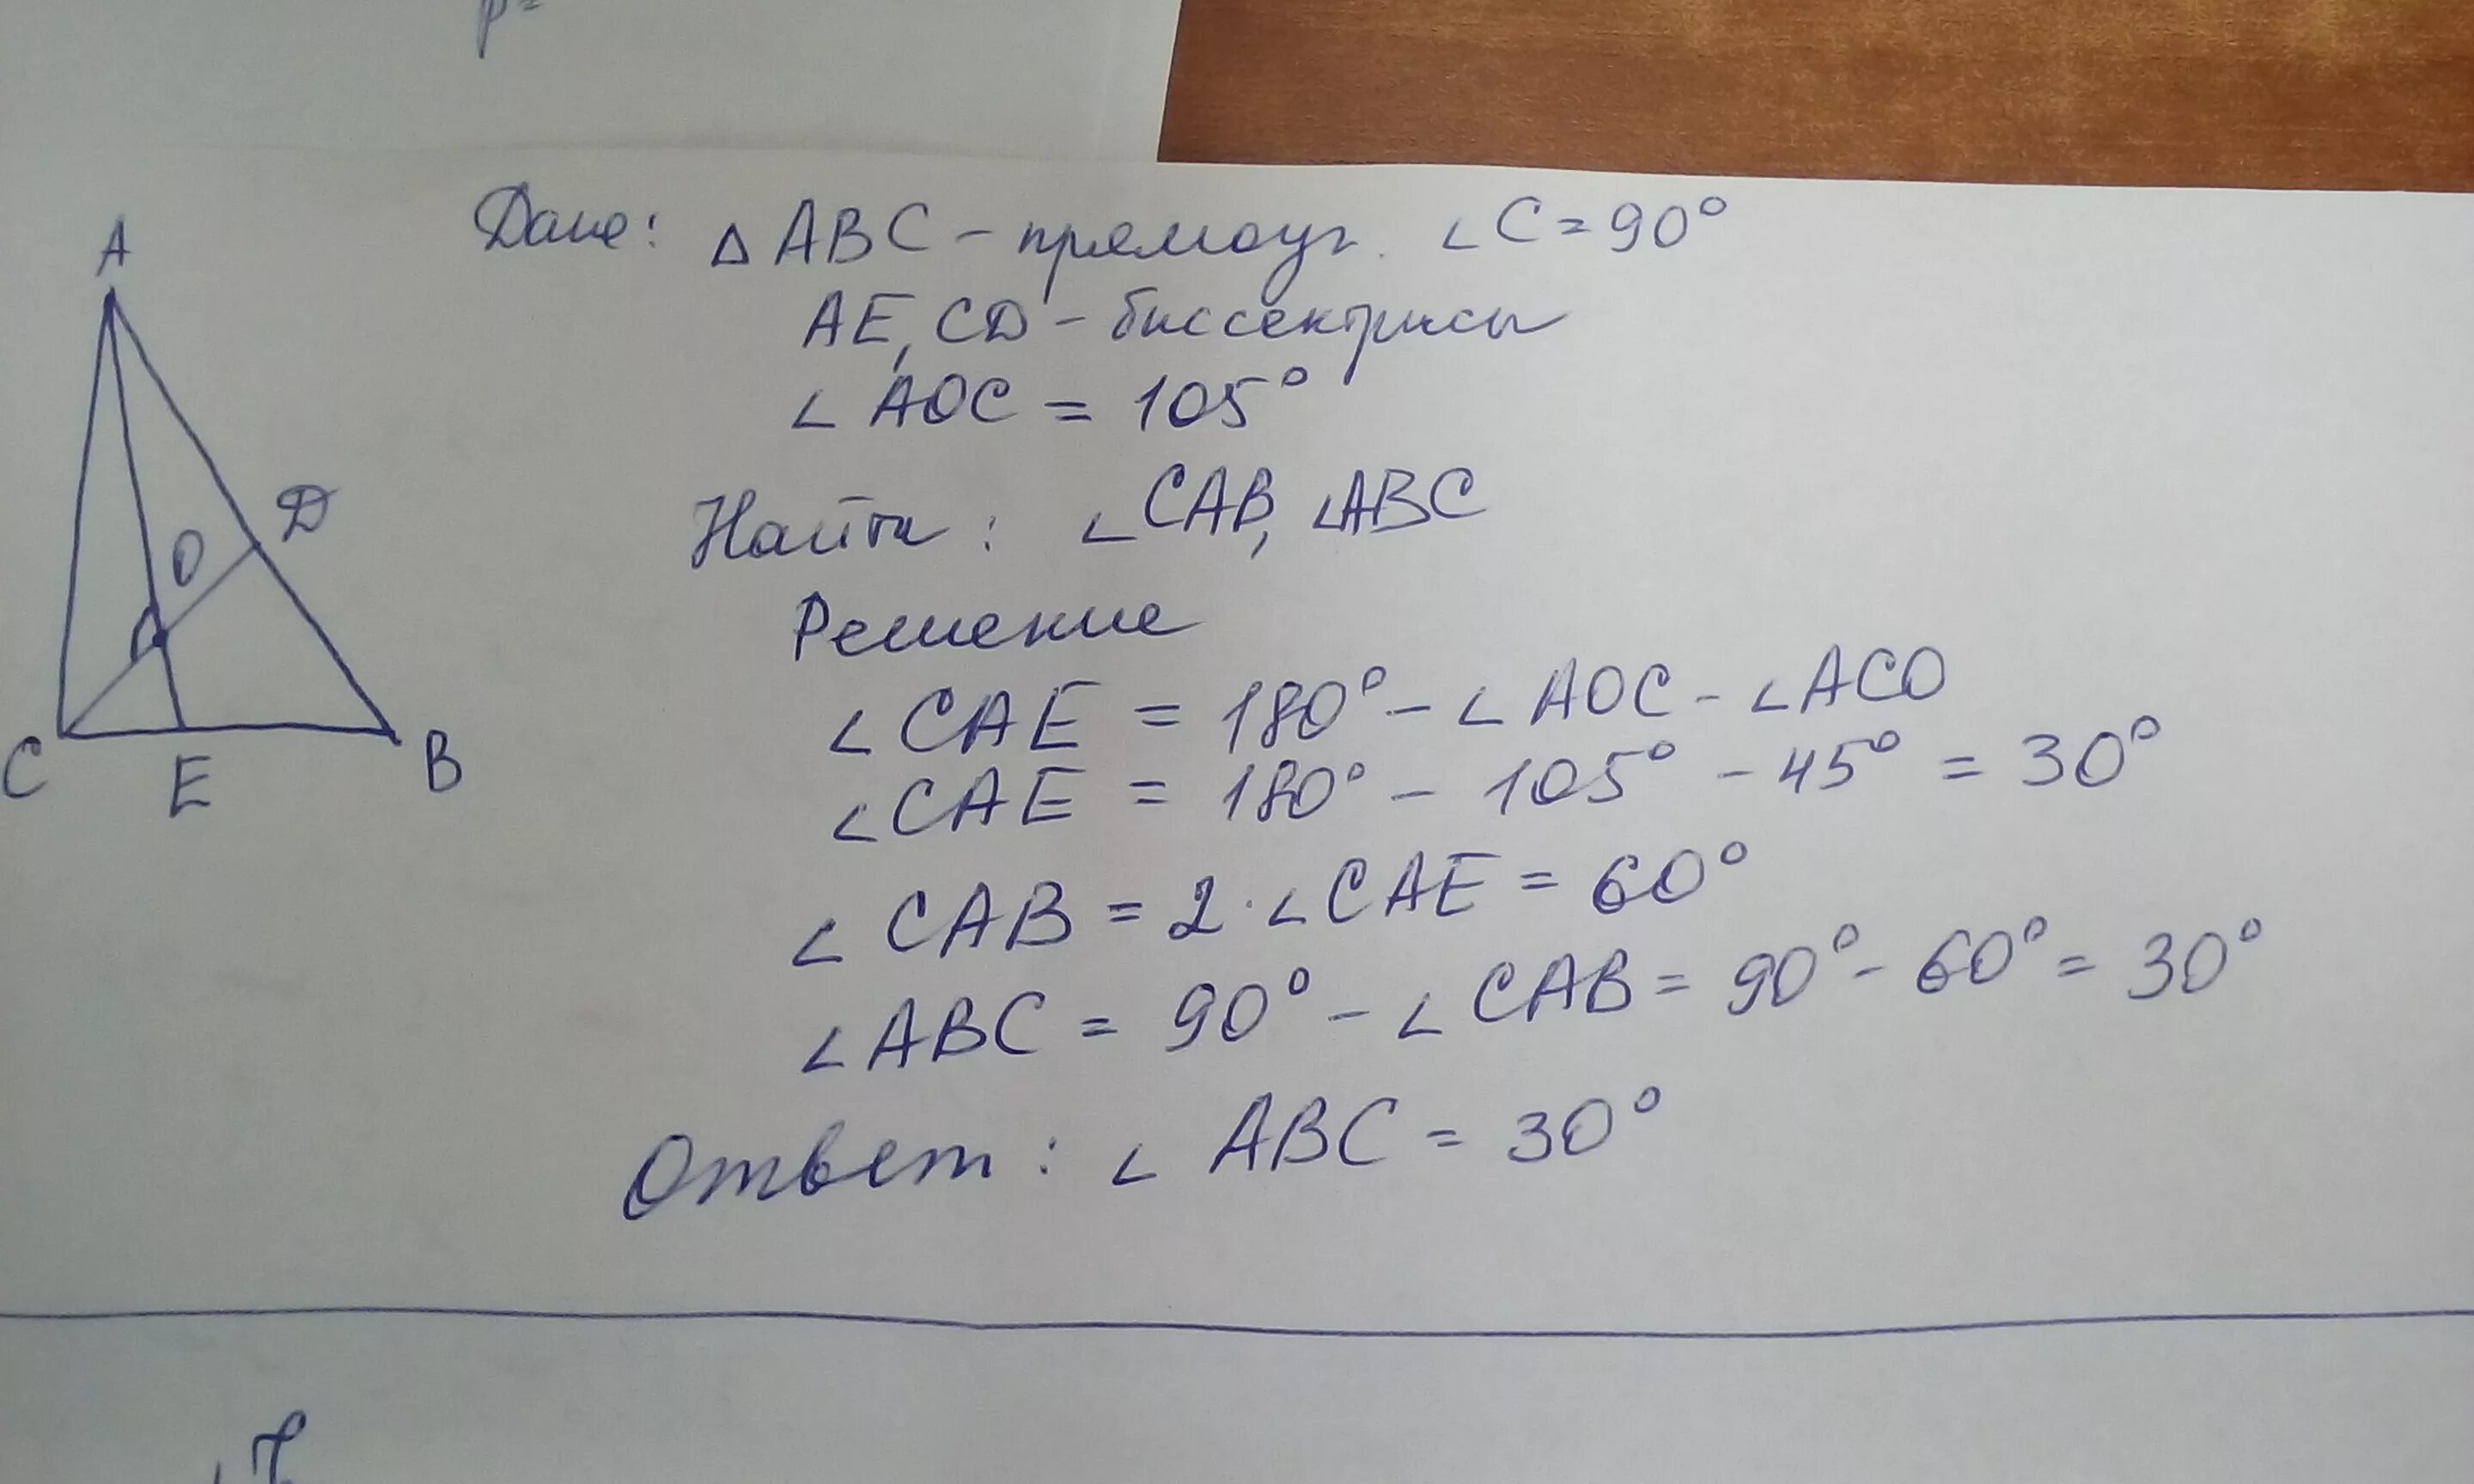 p=
Дано: △ ABC - прямоуг. ∠C = 90°
AE, CD - биссектрисы
∠ AOC = 105°
Найти: ∠CAB, ∠ABC
Решение
∠CAE = 180° - ∠AOC - ∠ACO
∠CAE = 180° - 105° - 45° = 30°
∠ CAB = 2 · ∠CAE = 60°
∠ABC = 90° - ∠CAB = 90° - 60° = 30°
Ответ: ∠ ABC = 30°
A
D
O
C
E
B